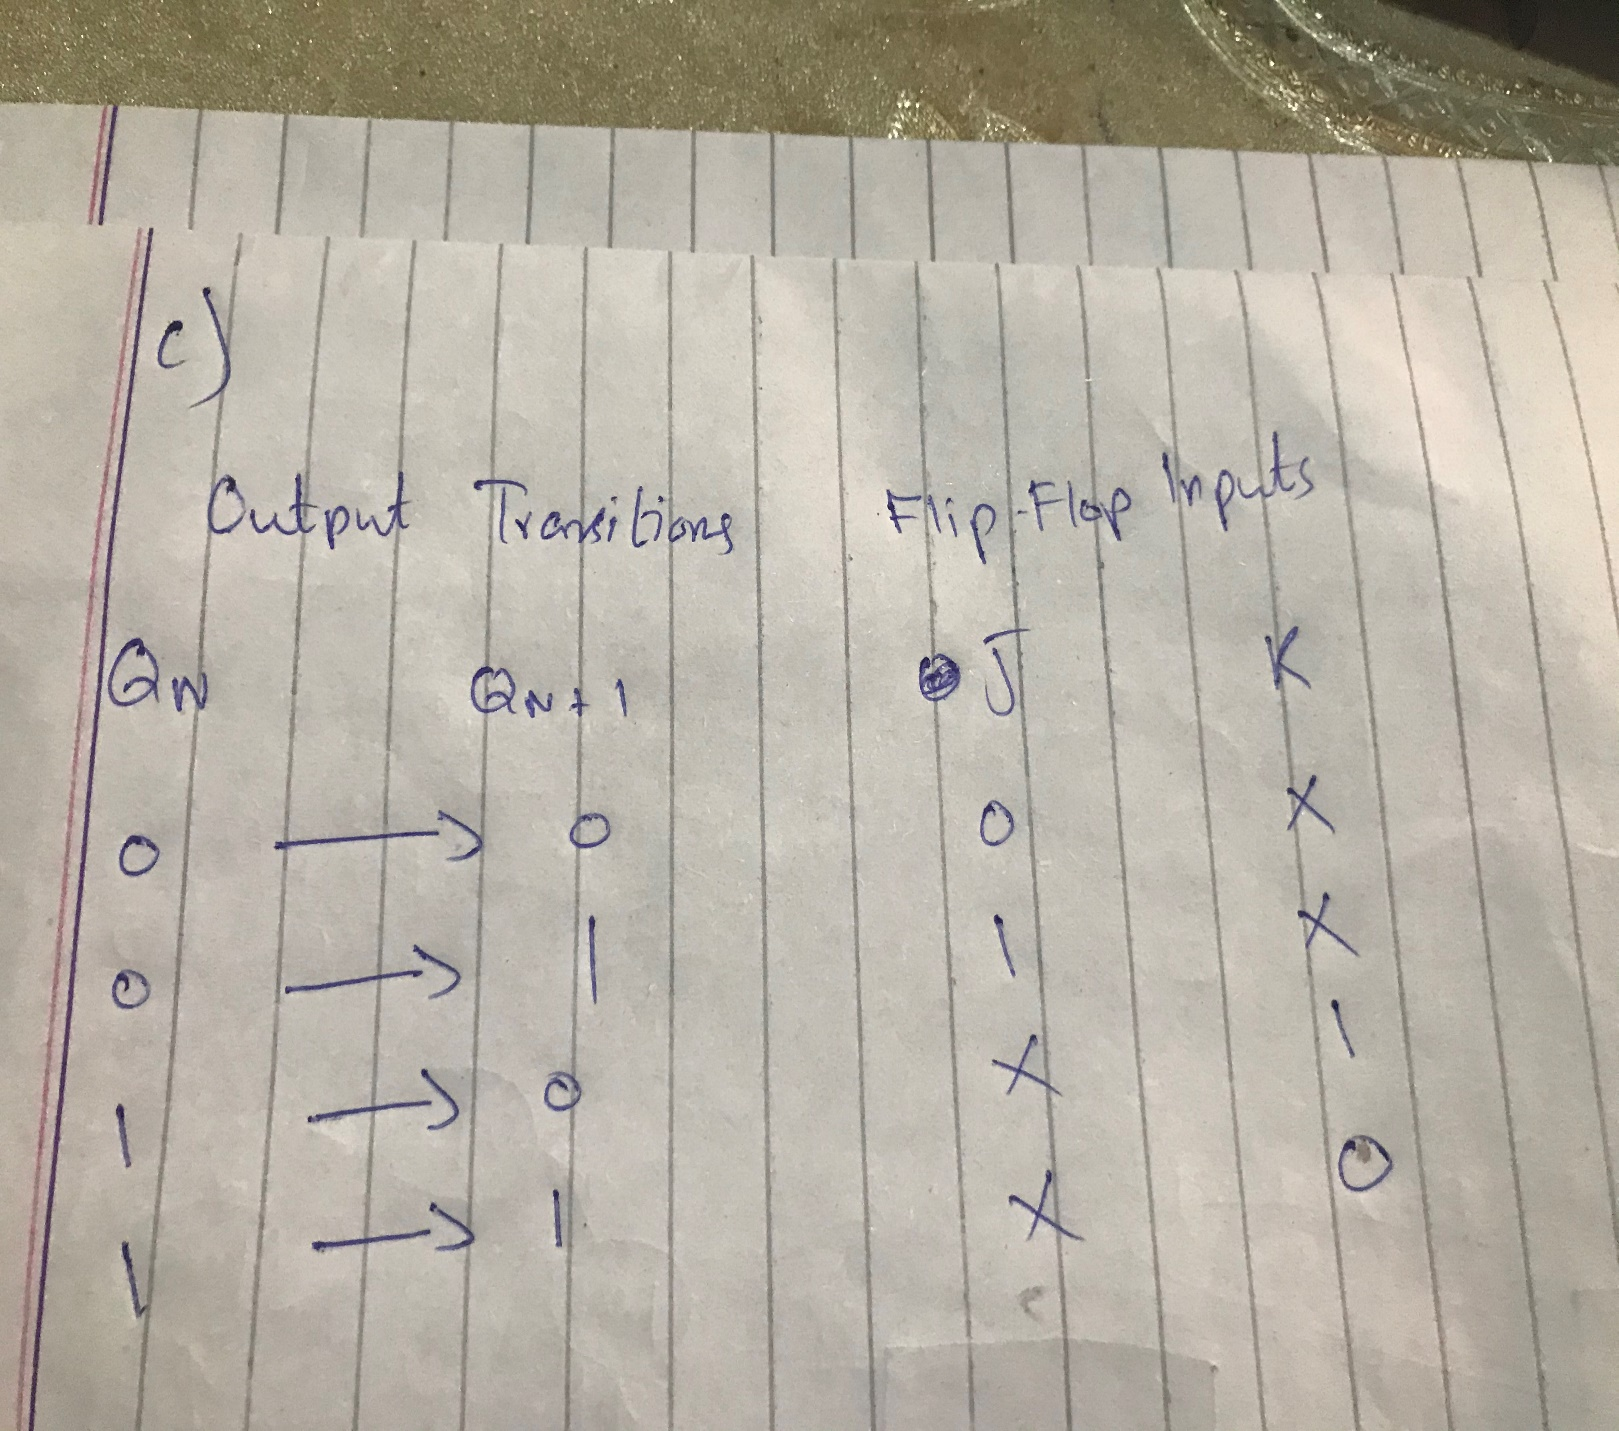 c)
Output Transitions Flip-Flop Inputs
QN QN+1 J K
0 → 0 0 X
0 → 1 1 X
1 → 0 X 1
1 → 1 X 0